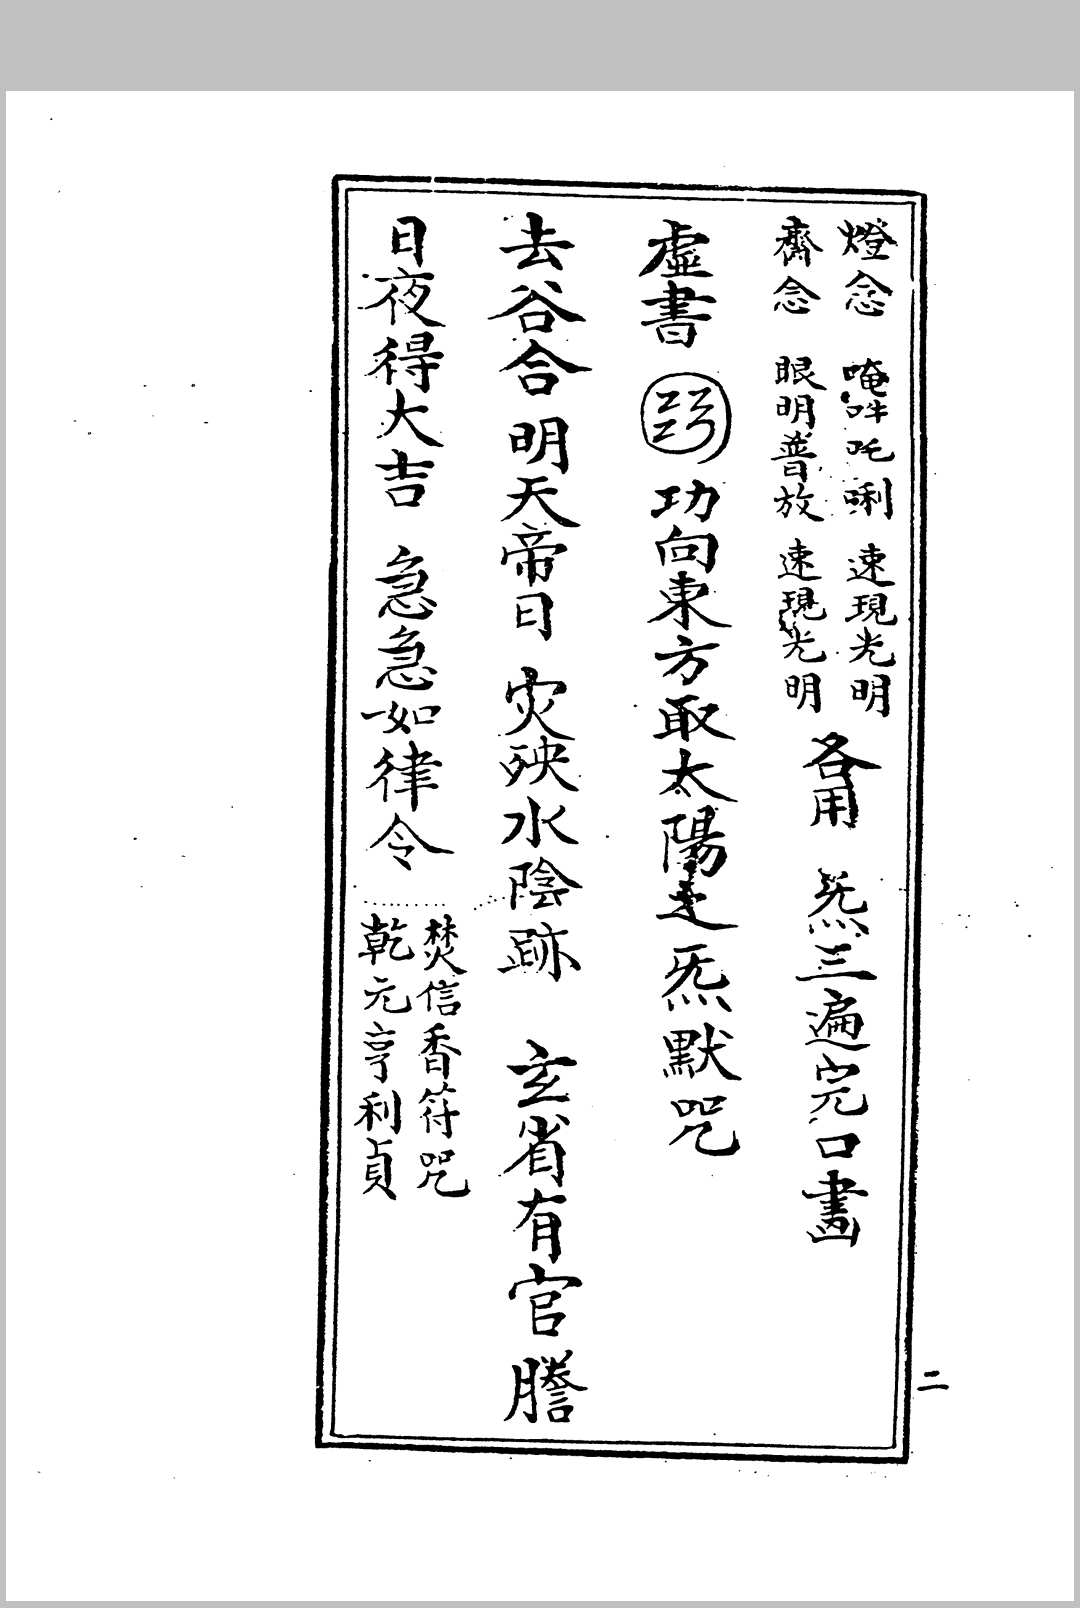 燈念 唵吽吒唎 速現光明
齋念 眼明普放 速現光明
各用 炁三遍完口書
虛書 功向東方取太陽之炁默咒
去谷合明天帝日 灾殃水陰跡 玄省有官謄
日夜得大吉 急急如律令
焚信香符咒
乾元亨利貞
二